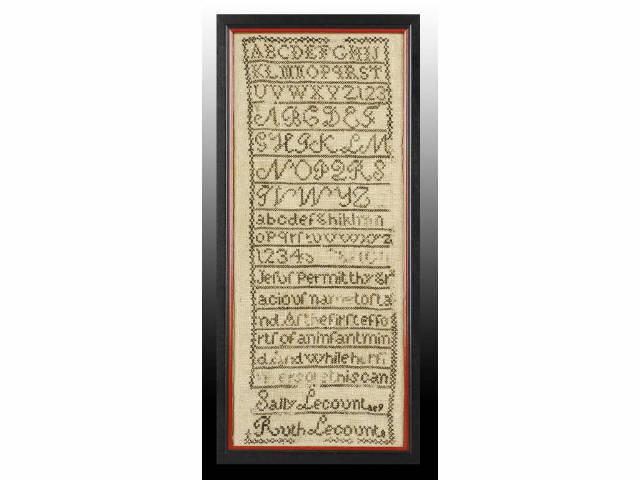 ABCDEFGHIJ
KLMNOPQRST
UVWXYZ123
ABCDEF
GHIKLM
NOPQRS
TVWYZ
abcdefghiklmn
opqrſstuvwxyz
12345
Jeſuſ Permit thy gr
aciouſ name to ſta
nd As the firſt effo
rtſ of an infant min
d And while her fi
this can
Sally Lecount
Ruth Lecount